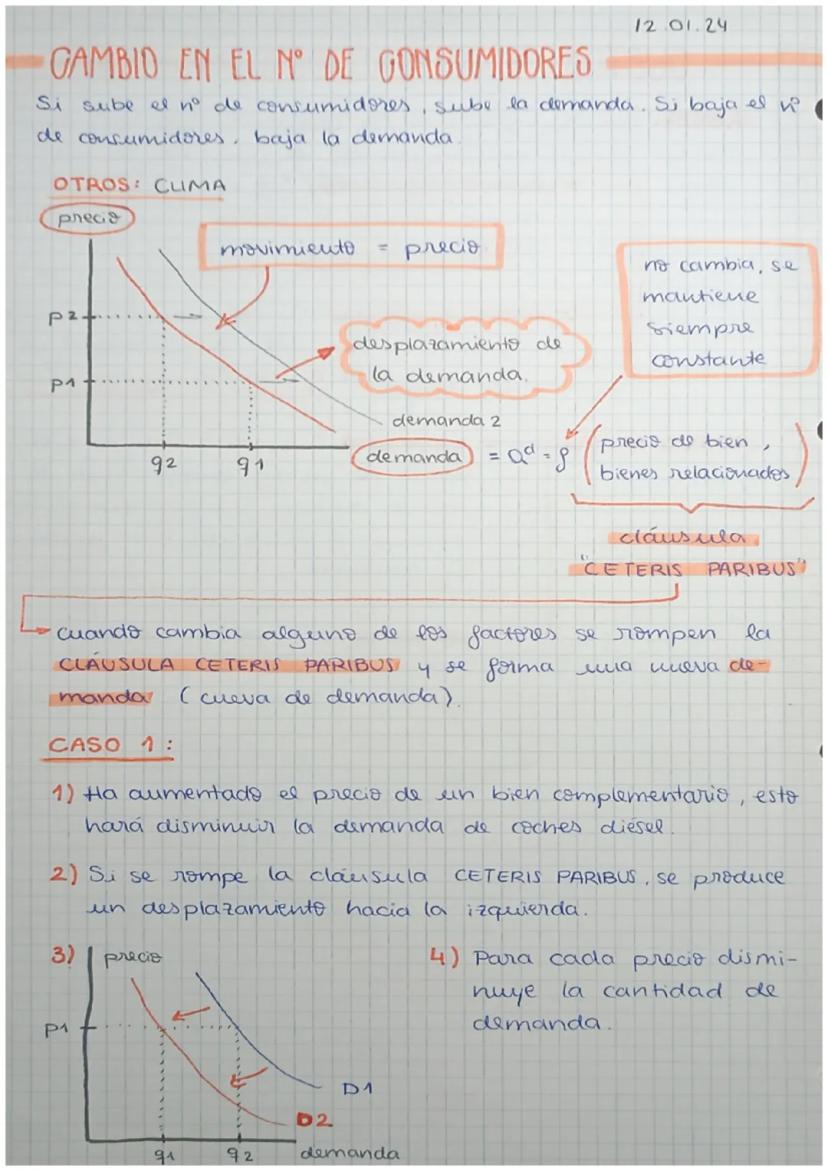 12.01.24
CAMBIO EN EL Nº DE CONSUMIDORES
Si sube el nº de consumidores, sube la demanda. Si baja el nº
de consumidores, baja la demanda.
OTROS: CLIMA
precio
movimiento = precio
no cambia, se
mantiene
siempre
constante
P2
desplazamiento de
la demanda.
P1
demanda 2
q2
q1
demanda = Qd = f (precio de bien,
bienes relacionados)
cláusula
"CETERIS PARIBUS"
cuando cambia alguno de los factores se rompen la
CLÁUSULA CETERIS PARIBUS y se forma una nueva de-
manda (cueva de demanda).
CASO 1:
1) Ha aumentado el precio de un bien complementario, esto
hará disminuir la demanda de coches diésel.
2) Si se rompe la cláusula CETERIS PARIBUS, se produce
un desplazamiento hacia la izquierda.
3) precio
P1
D1
D2
q1
q2
demanda
4) Para cada precio dismi-
nuye la cantidad de
demanda.